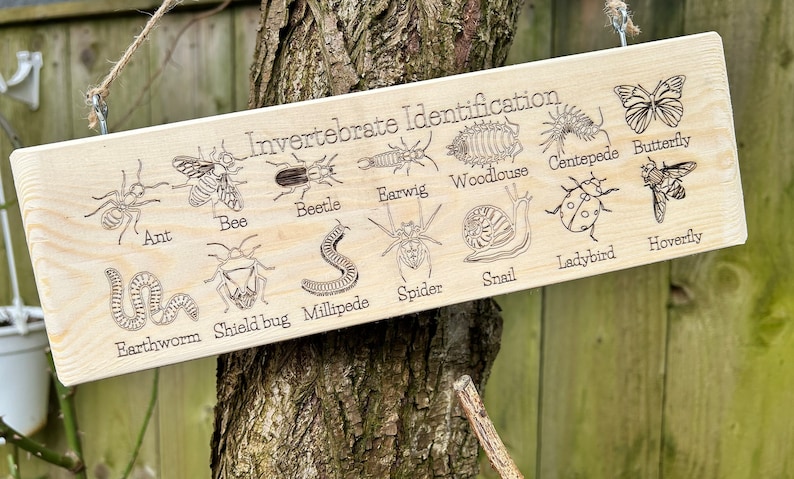 Invertebrate Identification
Ant
Bee
Beetle
Earwig
Woodlouse
Centepede
Butterfly
Earthworm
Shield bug
Millipede
Spider
Snail
Ladybird
Hoverfly